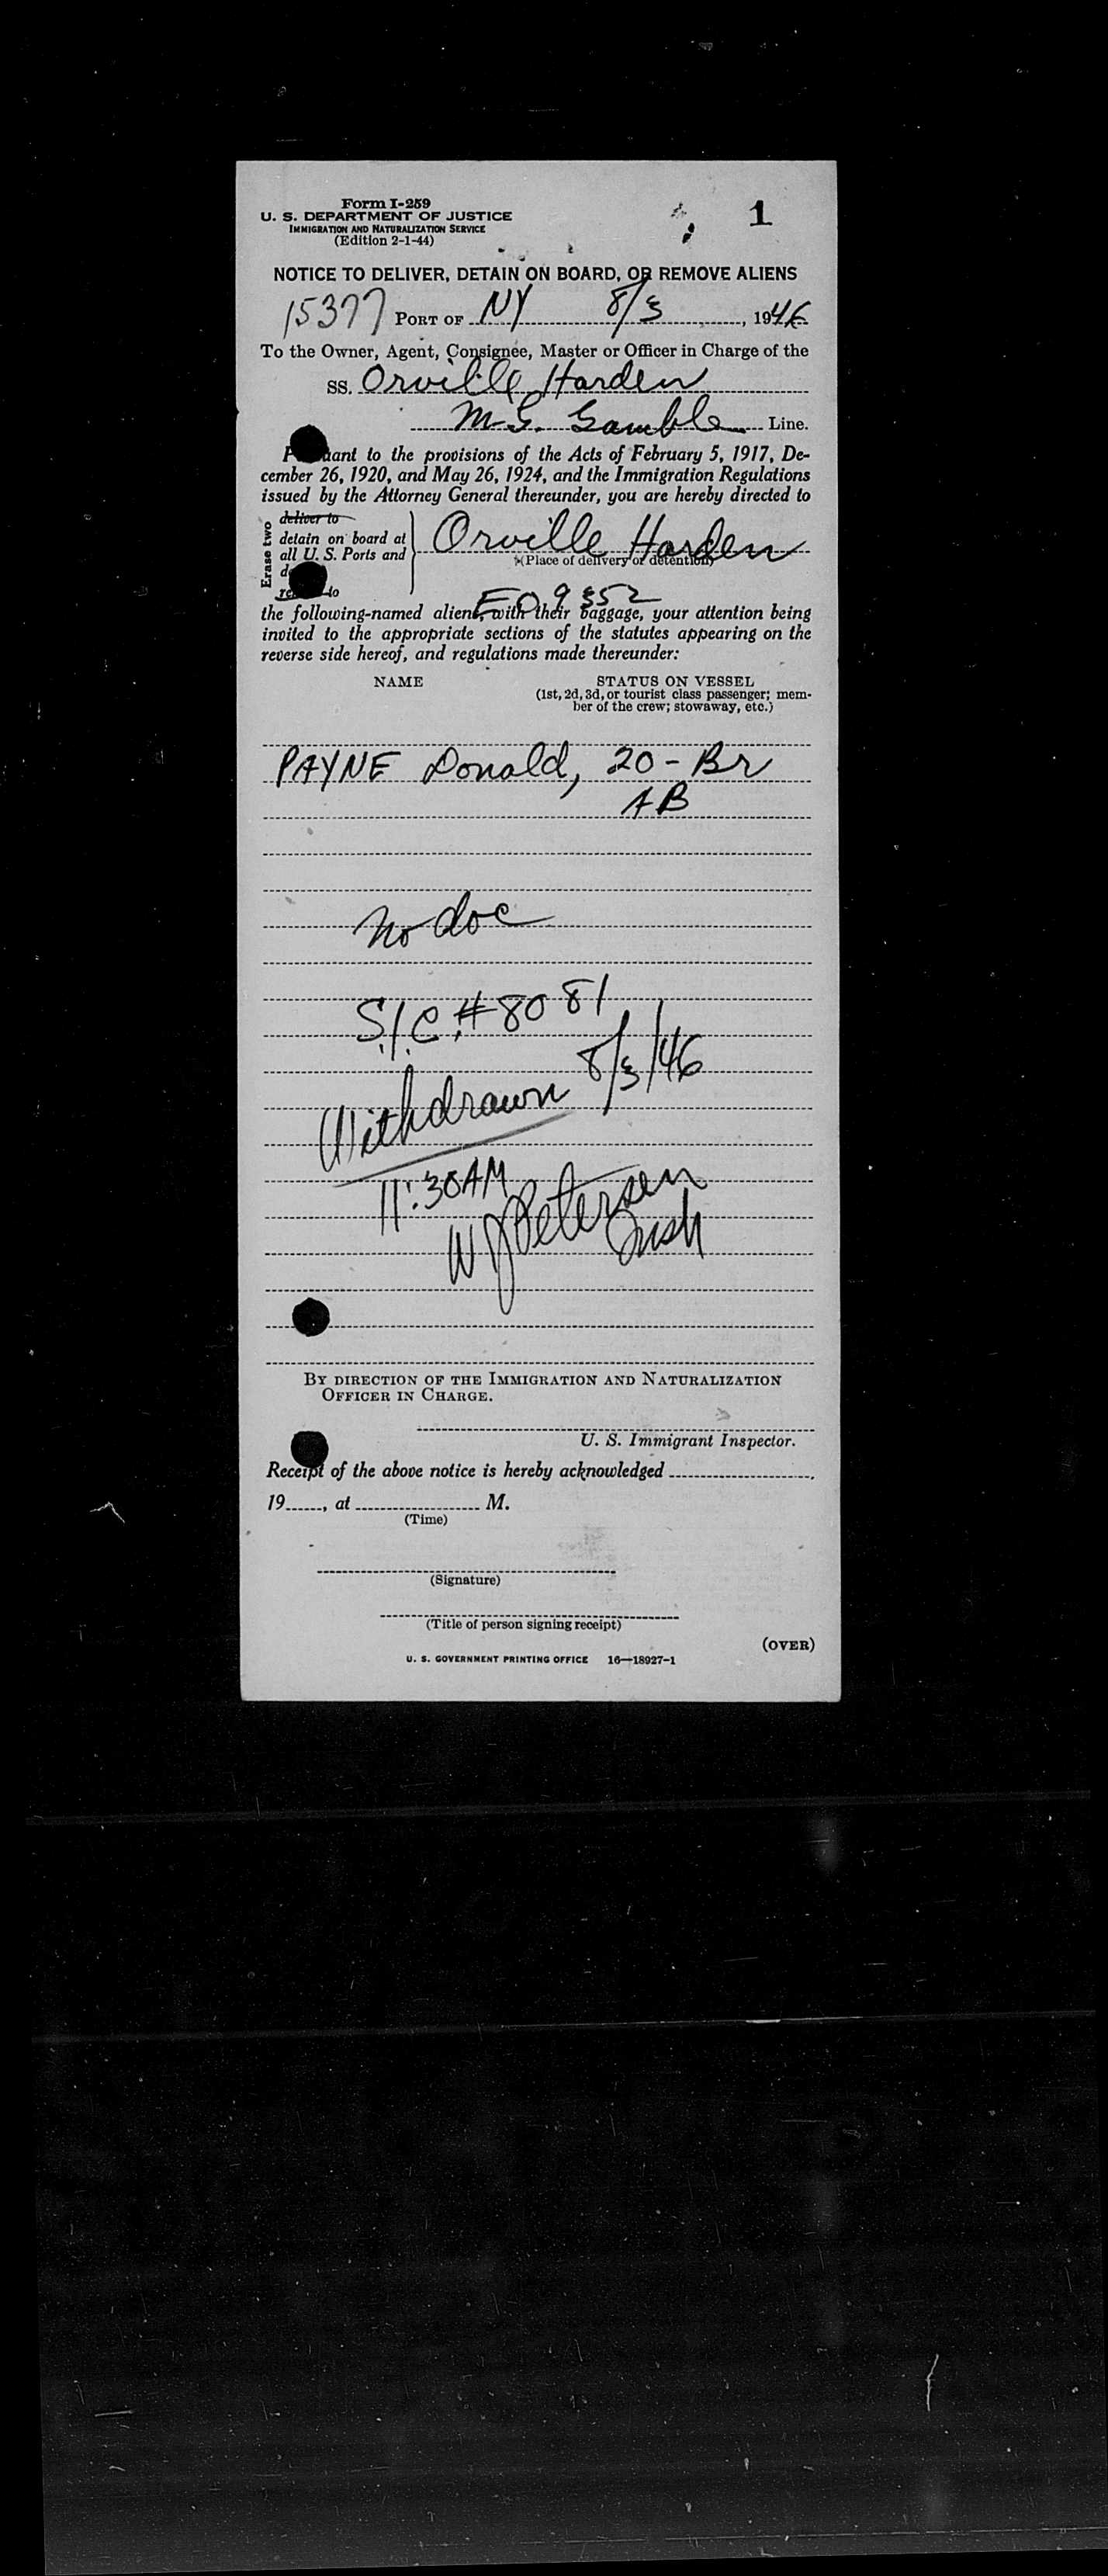 Form I-259
U. S. DEPARTMENT OF JUSTICE
IMMIGRATION AND NATURALIZATION SERVICE
(Edition 2-1-44)
1
NOTICE TO DELIVER, DETAIN ON BOARD, OR REMOVE ALIENS
15377 PORT OF NY 8/3, 1946
To the Owner, Agent, Consignee, Master or Officer in Charge of the
SS. Orville Harden
M. G. Gamble Line.
to the provisions of the Acts of February 5, 1917, De-
cember 26, 1920, and May 26, 1924, and the Immigration Regulations
issued by the Attorney General thereunder, you are hereby directed to
Erase two
deliver to
detain on board at
all U. S. Ports and
to
Orville Harden
(Place of delivery or detention)
EO 9352
the following-named aliens, with their baggage, your attention being
invited to the appropriate sections of the statutes appearing on the
reverse side hereof, and regulations made thereunder:
NAME STATUS ON VESSEL
(1st, 2d, 3d, or tourist class passenger; mem-
ber of the crew; stowaway, etc.)
PAYNE Donald, 20 - Br
AB
No doc
S.I.C. #8081
Withdrawn 8/3/46
11:30AM
W J Petersen
Insp
BY DIRECTION OF THE IMMIGRATION AND NATURALIZATION
OFFICER IN CHARGE.
U. S. Immigrant Inspector.
Receipt of the above notice is hereby acknowledged
19, at M.
(Time)
(Signature)
(Title of person signing receipt)
(OVER)
U. S. GOVERNMENT PRINTING OFFICE 16—18927-1